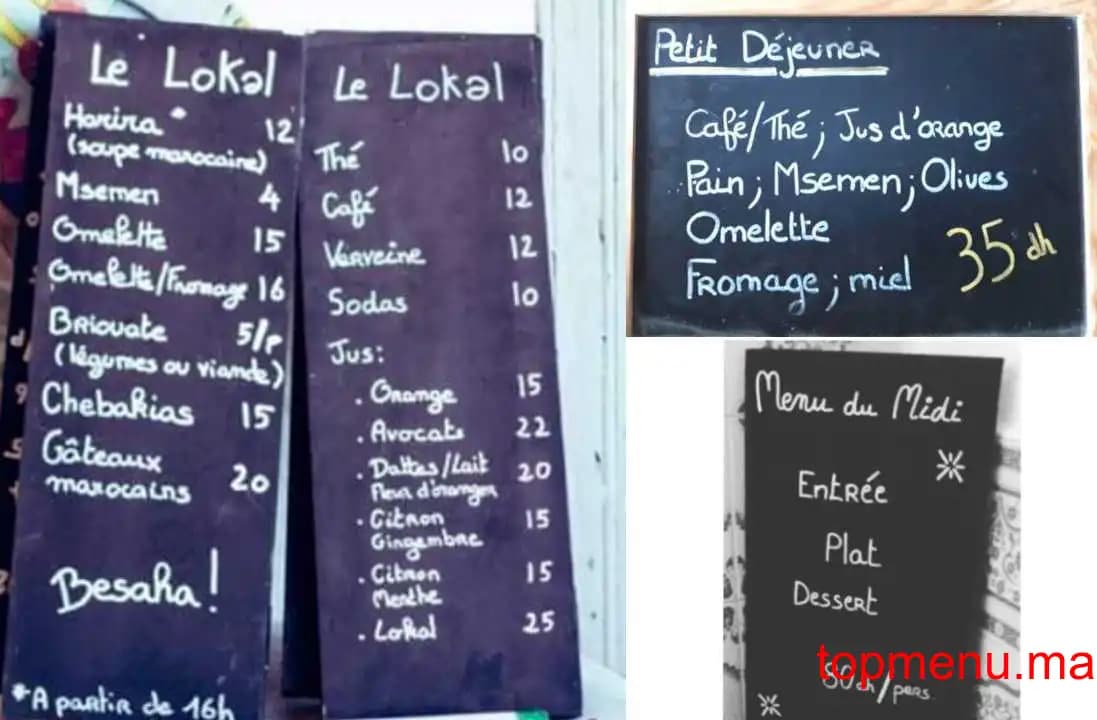 Le Lokal
Harira * 12
(soupe marocaine)
Msemen 4
Omelette 15
Omelette/Fromage 16
Briouate 5/p
(légumes ou viande)
Chebakias 15
Gâteaux
marocains 20
Besaha!
*A partir de 16h
Le Lokal
Thé 10
Café 12
Verveine 12
Sodas 10
Jus:
. Orange 15
. Avocats 22
. Dattes/Lait 20
Fleur d'oranger
. Citron 15
Gingembre
. Citron 15
Menthe
. Lokal 25
Petit Déjeuner
Café/Thé ; Jus d'orange
Pain ; Msemen ; Olives
Omelette
Fromage ; miel 35 dh
Menu du Midi
Entrée
Plat
Dessert
80dh/pers.
topmenu.ma